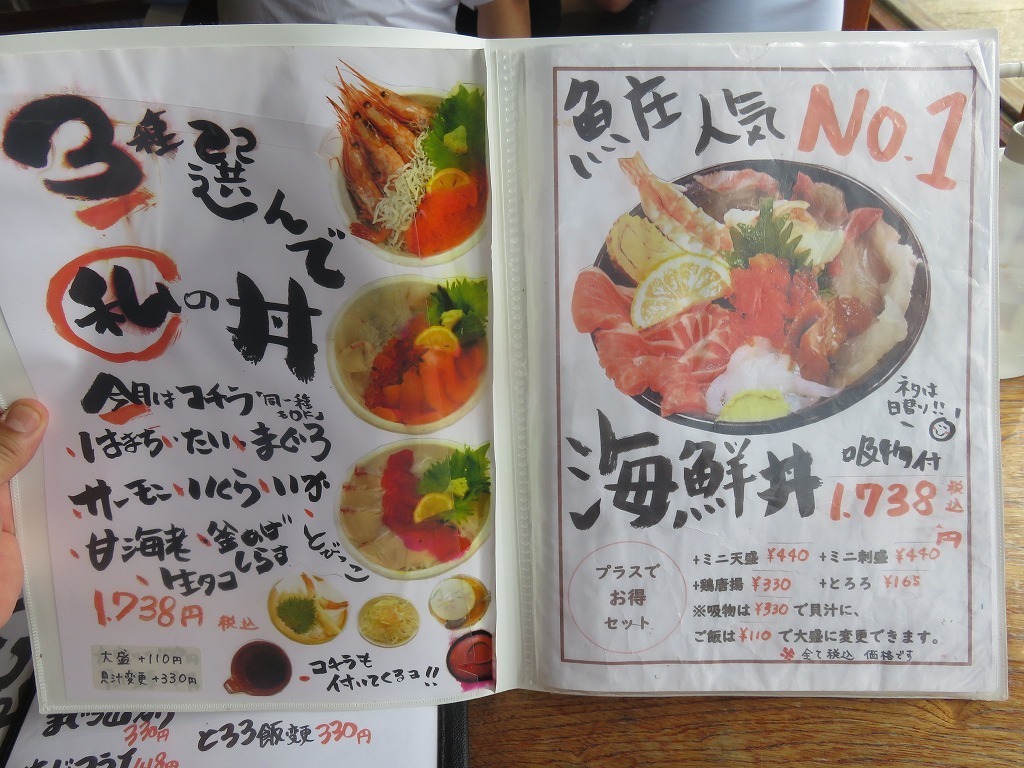 3種
選んで
私の丼
今月はコチラ「同一種もOK」
はまち・たい・まぐろ
サーモン・いくら・いか
甘海老・釜あげしらす・とびっこ
・生タコ
1.738円 税込
大盛 +110円
貝汁変更 +330円
コチラも
付いてくるョ!!
330円
とろろ飯変更 330円
魚庄 人気 No.1
ネタは
日替り!!
海鮮丼
吸物付
1.738円 税込
プラスで
お得
セット
+ミニ天盛 ¥440 +ミニ刺盛 ¥440
+鶏唐揚 ¥330 +とろろ ¥165
※吸物は¥330で貝汁に、
ご飯は¥110で大盛に変更できます。
全て税込 価格です